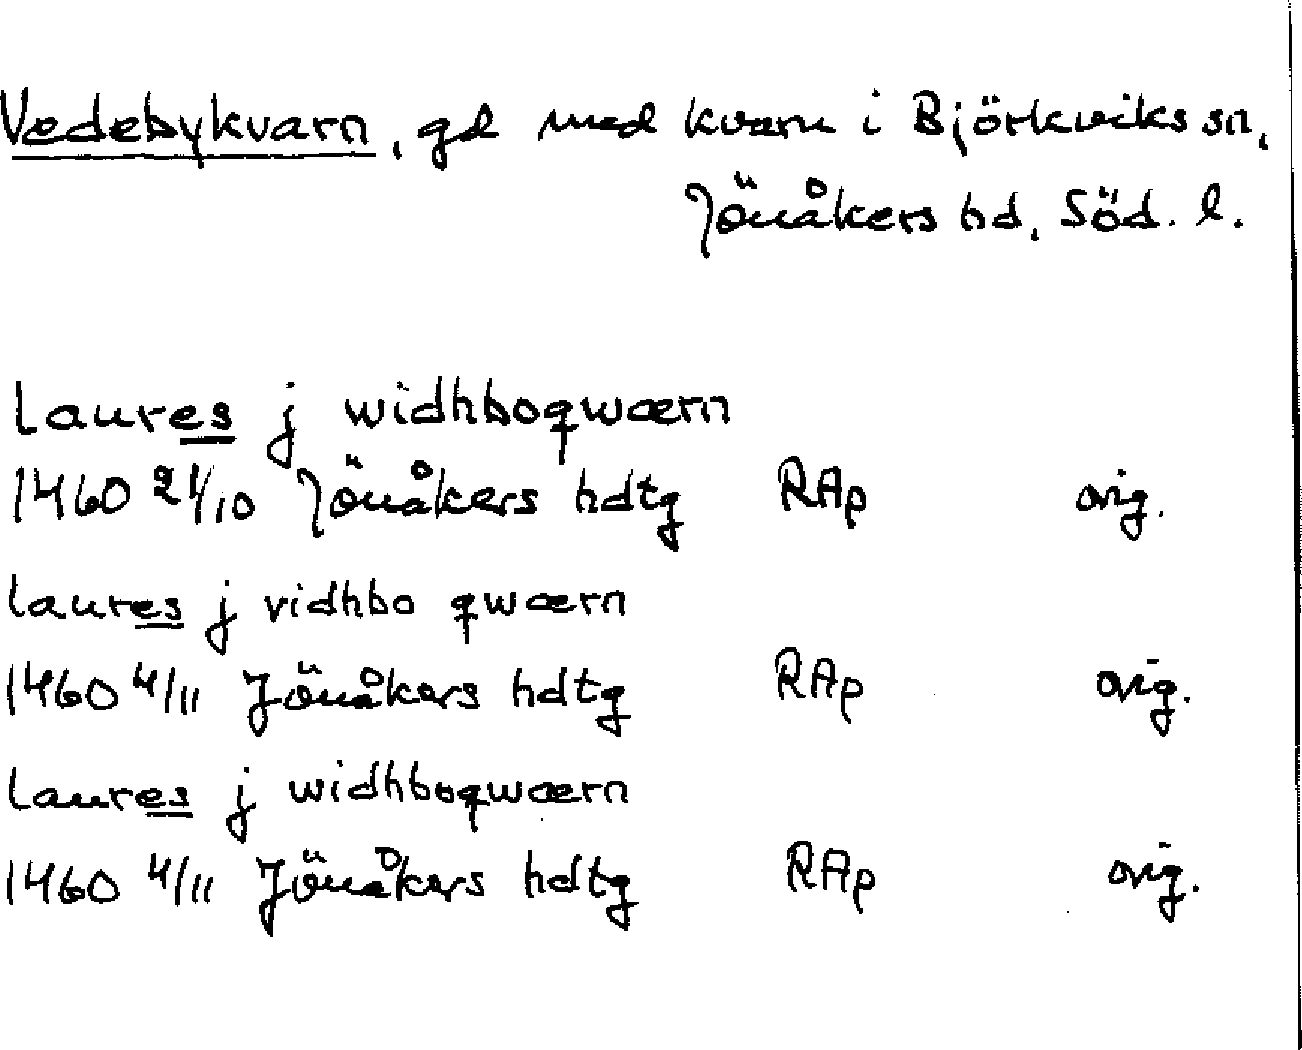 Vedebykvarn, gd med kvarn i Björkviks sn,
Jönåkers hd, Söd. l.
laures j widhboqwærn
1460 21/10 Jönåkers hdtg RAp orig.
laures j vidhbo qwærn
1460 4/11 Jönåkers hdtg RAp orig.
laures j widhboqwærn
1460 4/11 Jönåkers hdtg RAp orig.